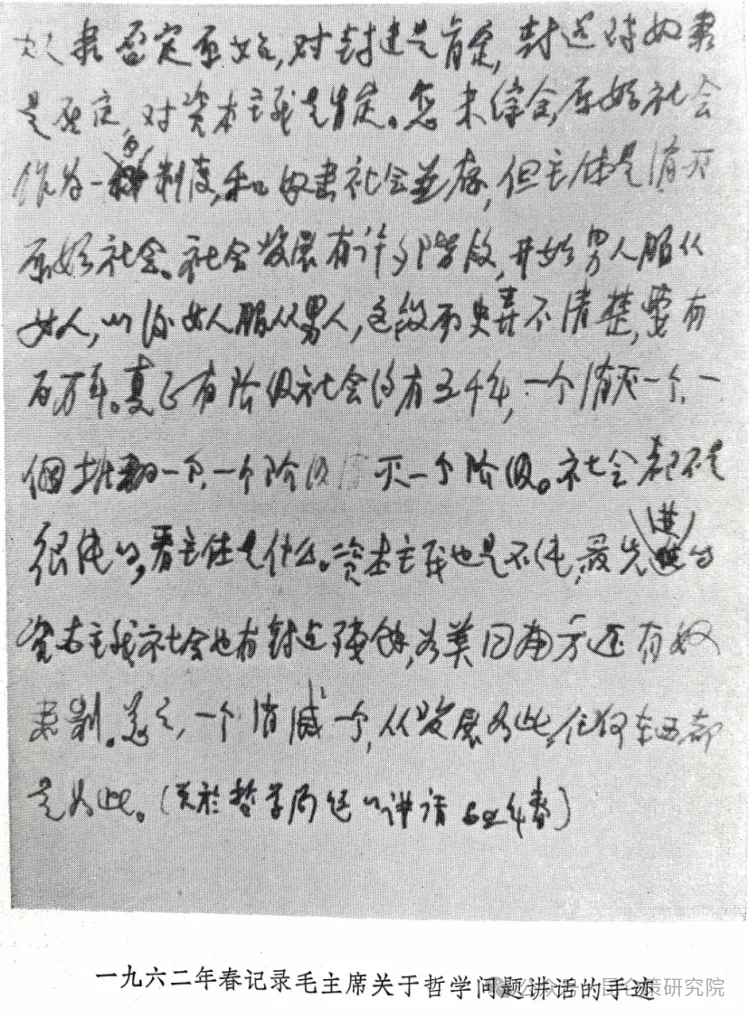 奴隶否定原始,对封建是肯定,封建对奴隶
是否定,对资本主义是肯定。怎未综合,原始社会
作为一种制度,和奴隶社会並存,但主体是消灭
原始社会。社会发展有许多阶段,开始男人服从
女人,以后女人服从男人,这段历史弄不清楚,要有
百万年。真正有阶级社会约有五千年,一个消灭一个,一
個推翻一个,一个阶级消灭一个阶级。社会都不是
很纯的,看主体是什么。资本主义也是不纯,最先进的
资本主义社会也有封建残余,如美国南方还有奴
隶制。总之,一个消滅一个,从发展如此,任何东西都
是如此。(关於哲学问题的讲话 62年春)
一九六二年春记录毛主席关于哲学问题讲话的手迹
公众号·昆仑策研究院